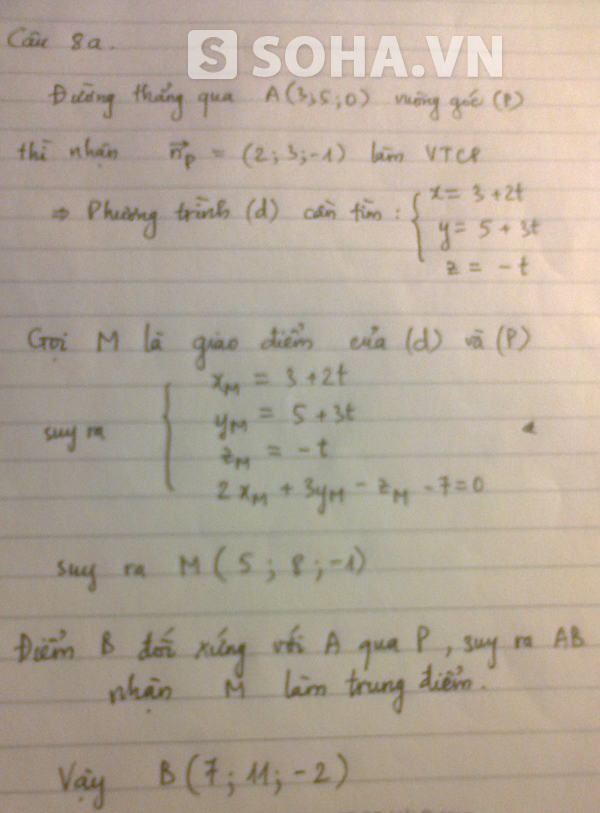 SOHA.VN
Câu 8a.
Đường thẳng qua A(3;5;0) vuông góc (P)
thì nhận n⃗p = (2;3;-1) làm VTCP
⇒ Phương trình (d) cần tìm : { x = 3 + 2t
y = 5 + 3t
z = -t
Gọi M là giao điểm của (d) và (P)
suy ra { xM = 3 + 2t
yM = 5 + 3t
zM = -t
2xM + 3yM - zM - 7 = 0
suy ra M( 5 ; 8 ; -1)
Điểm B đối xứng với A qua P, suy ra AB
nhận M làm trung điểm.
Vậy B(7 ; 11 ; -2)